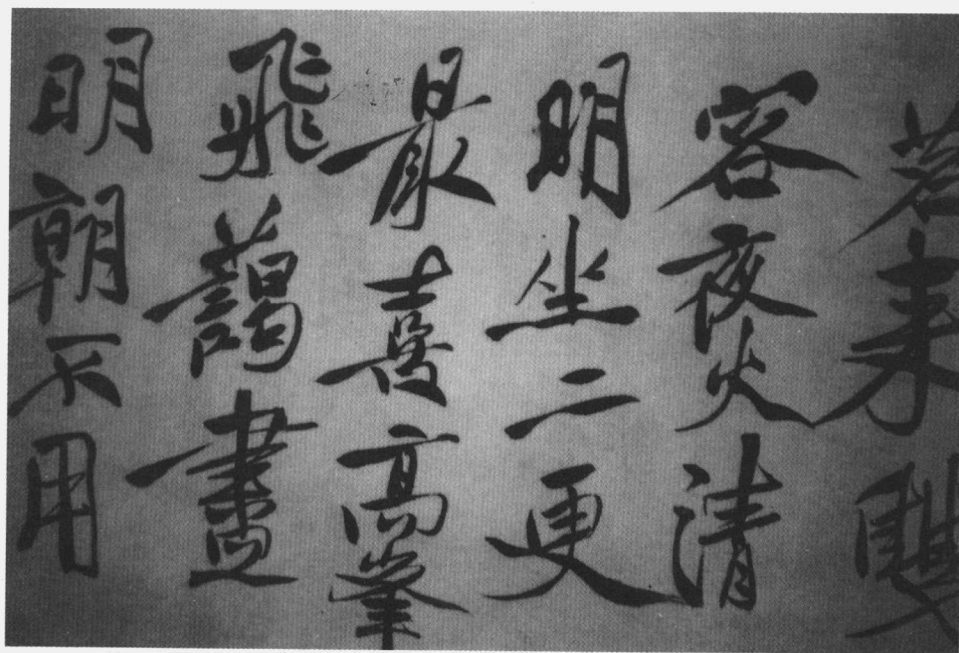 茗来雙
客夜火清
明坐二更
最喜高峯
飛藹盡
明朝不用